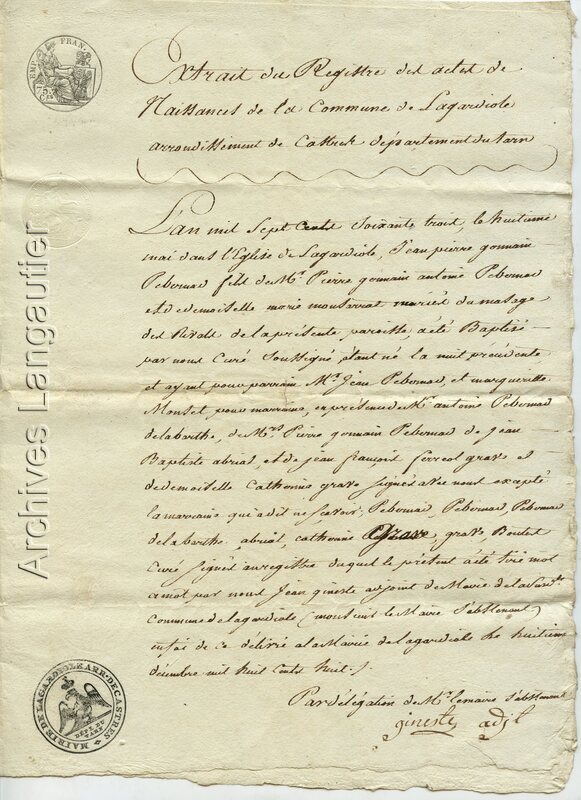 EMP. FRAN.
Extrait du Registre des actes de
Naissances de la Commune de Lagardiole
arrondissement de Castres département du tarn
L'an mil Sept Cents Soixante trois, le huitieme
mai dans l'Eglise de Lagardiole, Jean pierre germain
Pebernad fils de Mr. Pierre germain antoine Pebernad
et de demoiselle marie montarnal mariés du masage
des Rivals de la présente paroisse, a été Baptisé
par nous Curé Soussigné, étant né la nuit précédente
et ayant pour parrain Mr. Jean Pebernad, et margueritte
Monset pour marraine, en présence de Mr. antoine Pebernad
delabarthe, de Mrs. Pierre germain Pebernad de jean
Baptiste abrial, et de jean françois ferreol grave et
demoiselle Catherine grave signés avec nous exepté
la marraine qui a dit ne savoir, Pebernad, Pebernad, Pebernad
delabarthe, abrial, catherine Grave, grave, Boutet
Curé Signés au registre duquel le présent a été tiré mot
a mot par nous Jean gineste adjoint de Mairie de la Susdte
Commune de lagardiole (monsieur le Maire S'absttenant)
en foi de ce délivré a la Mairie de lagardiole le huitieme
décembre mil huit Cents huit ./.
Par délégation de Mr. lemaire S'absttenant
gineste adjt
MAIRIE DE LAGARDIOLE ARR. DE CASTRES
DEPT DU TARN
Archives Langautier